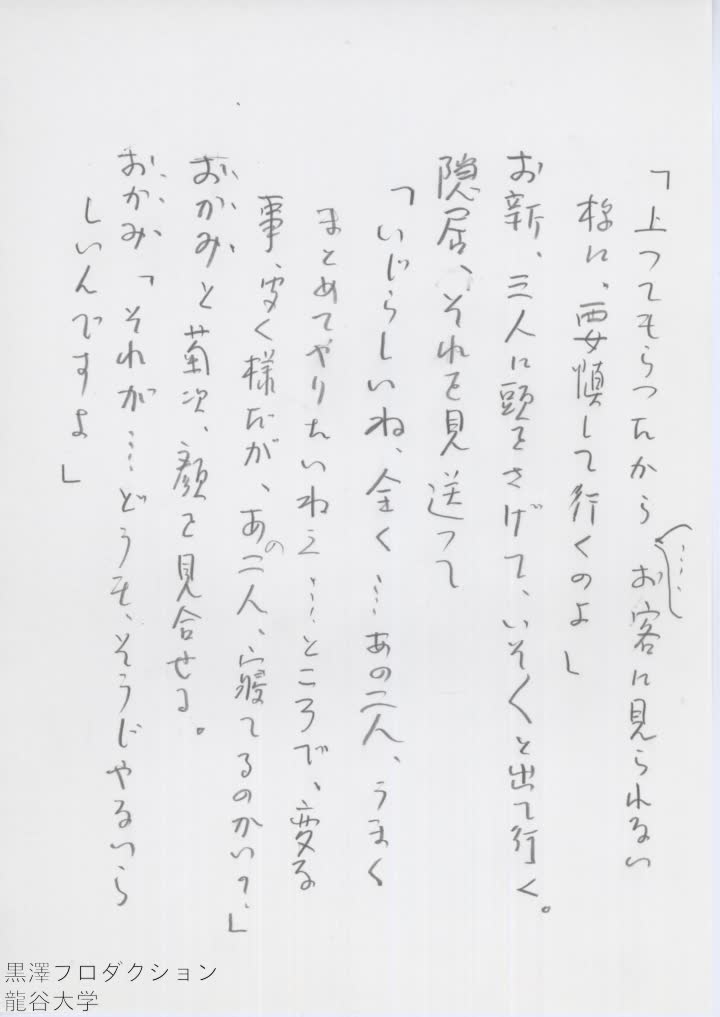 「上つてもらつたから……お客に見られない
様に、要慎して行くのよ」
お新、三人に頭をさげて、いそ〱と出て行く。
隠居、それを見送つて
「いじらしいね、全く……あの二人、うまく
まとめてやりたいねえ……ところで、変な
事、聞く様だが、あの二人、寝てるのかい?」
おかみと菊次、顔を見合せる。
おかみ「それが……どうも、そうじやないら
しいんですよ」
黒澤プロダクション
龍谷大学